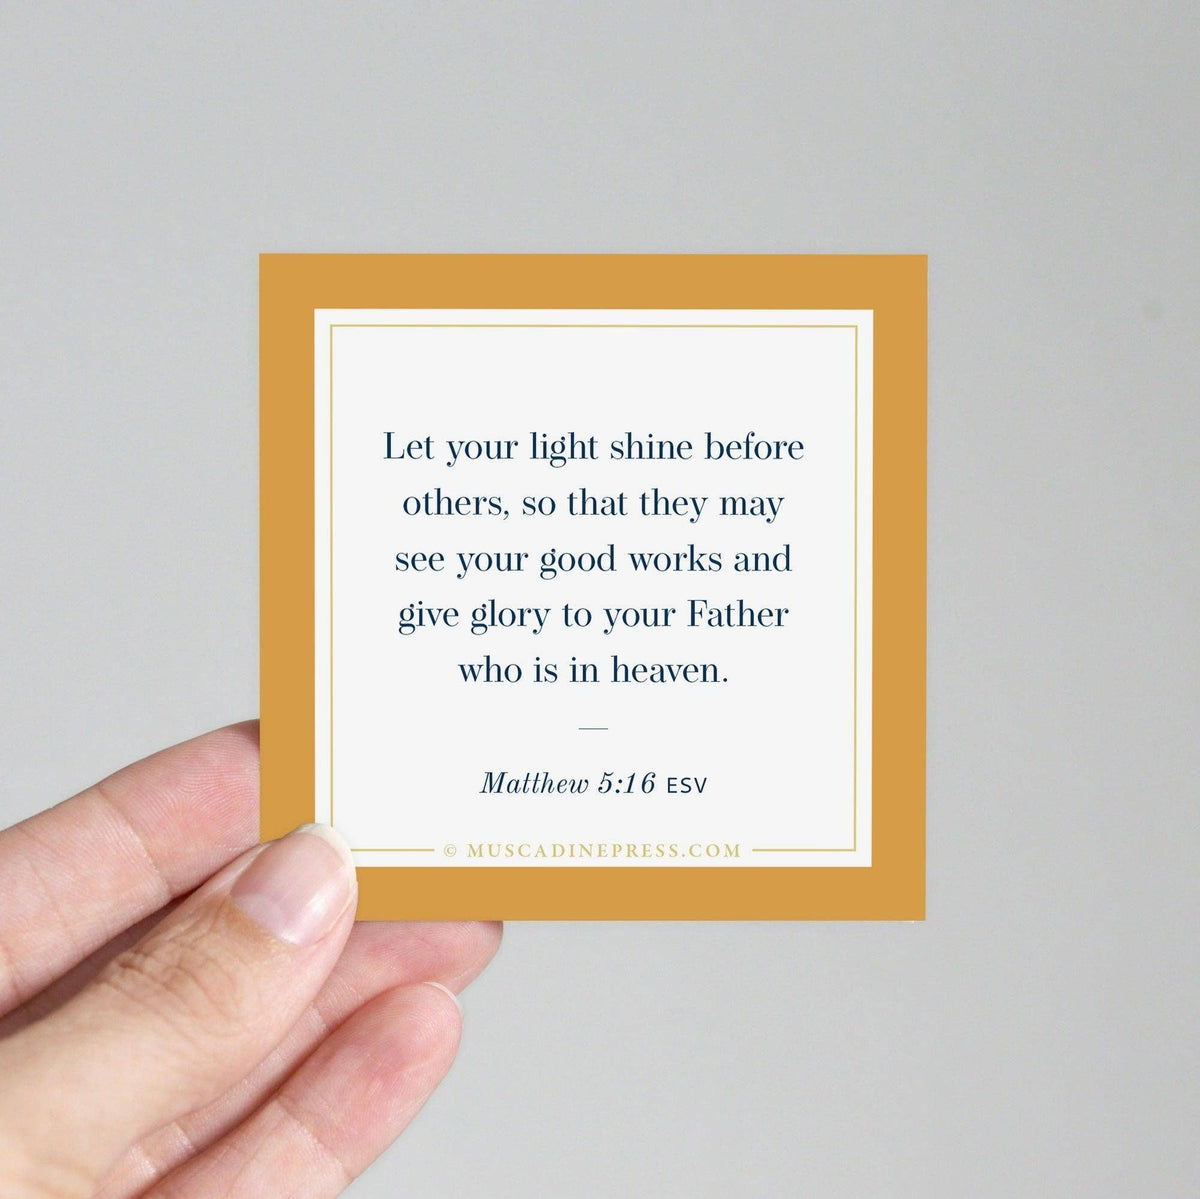 Let your light shine before
others, so that they may
see your good works and
give glory to your Father
who is in heaven.
Matthew 5:16 ESV
© MUSCADINEPRESS.COM